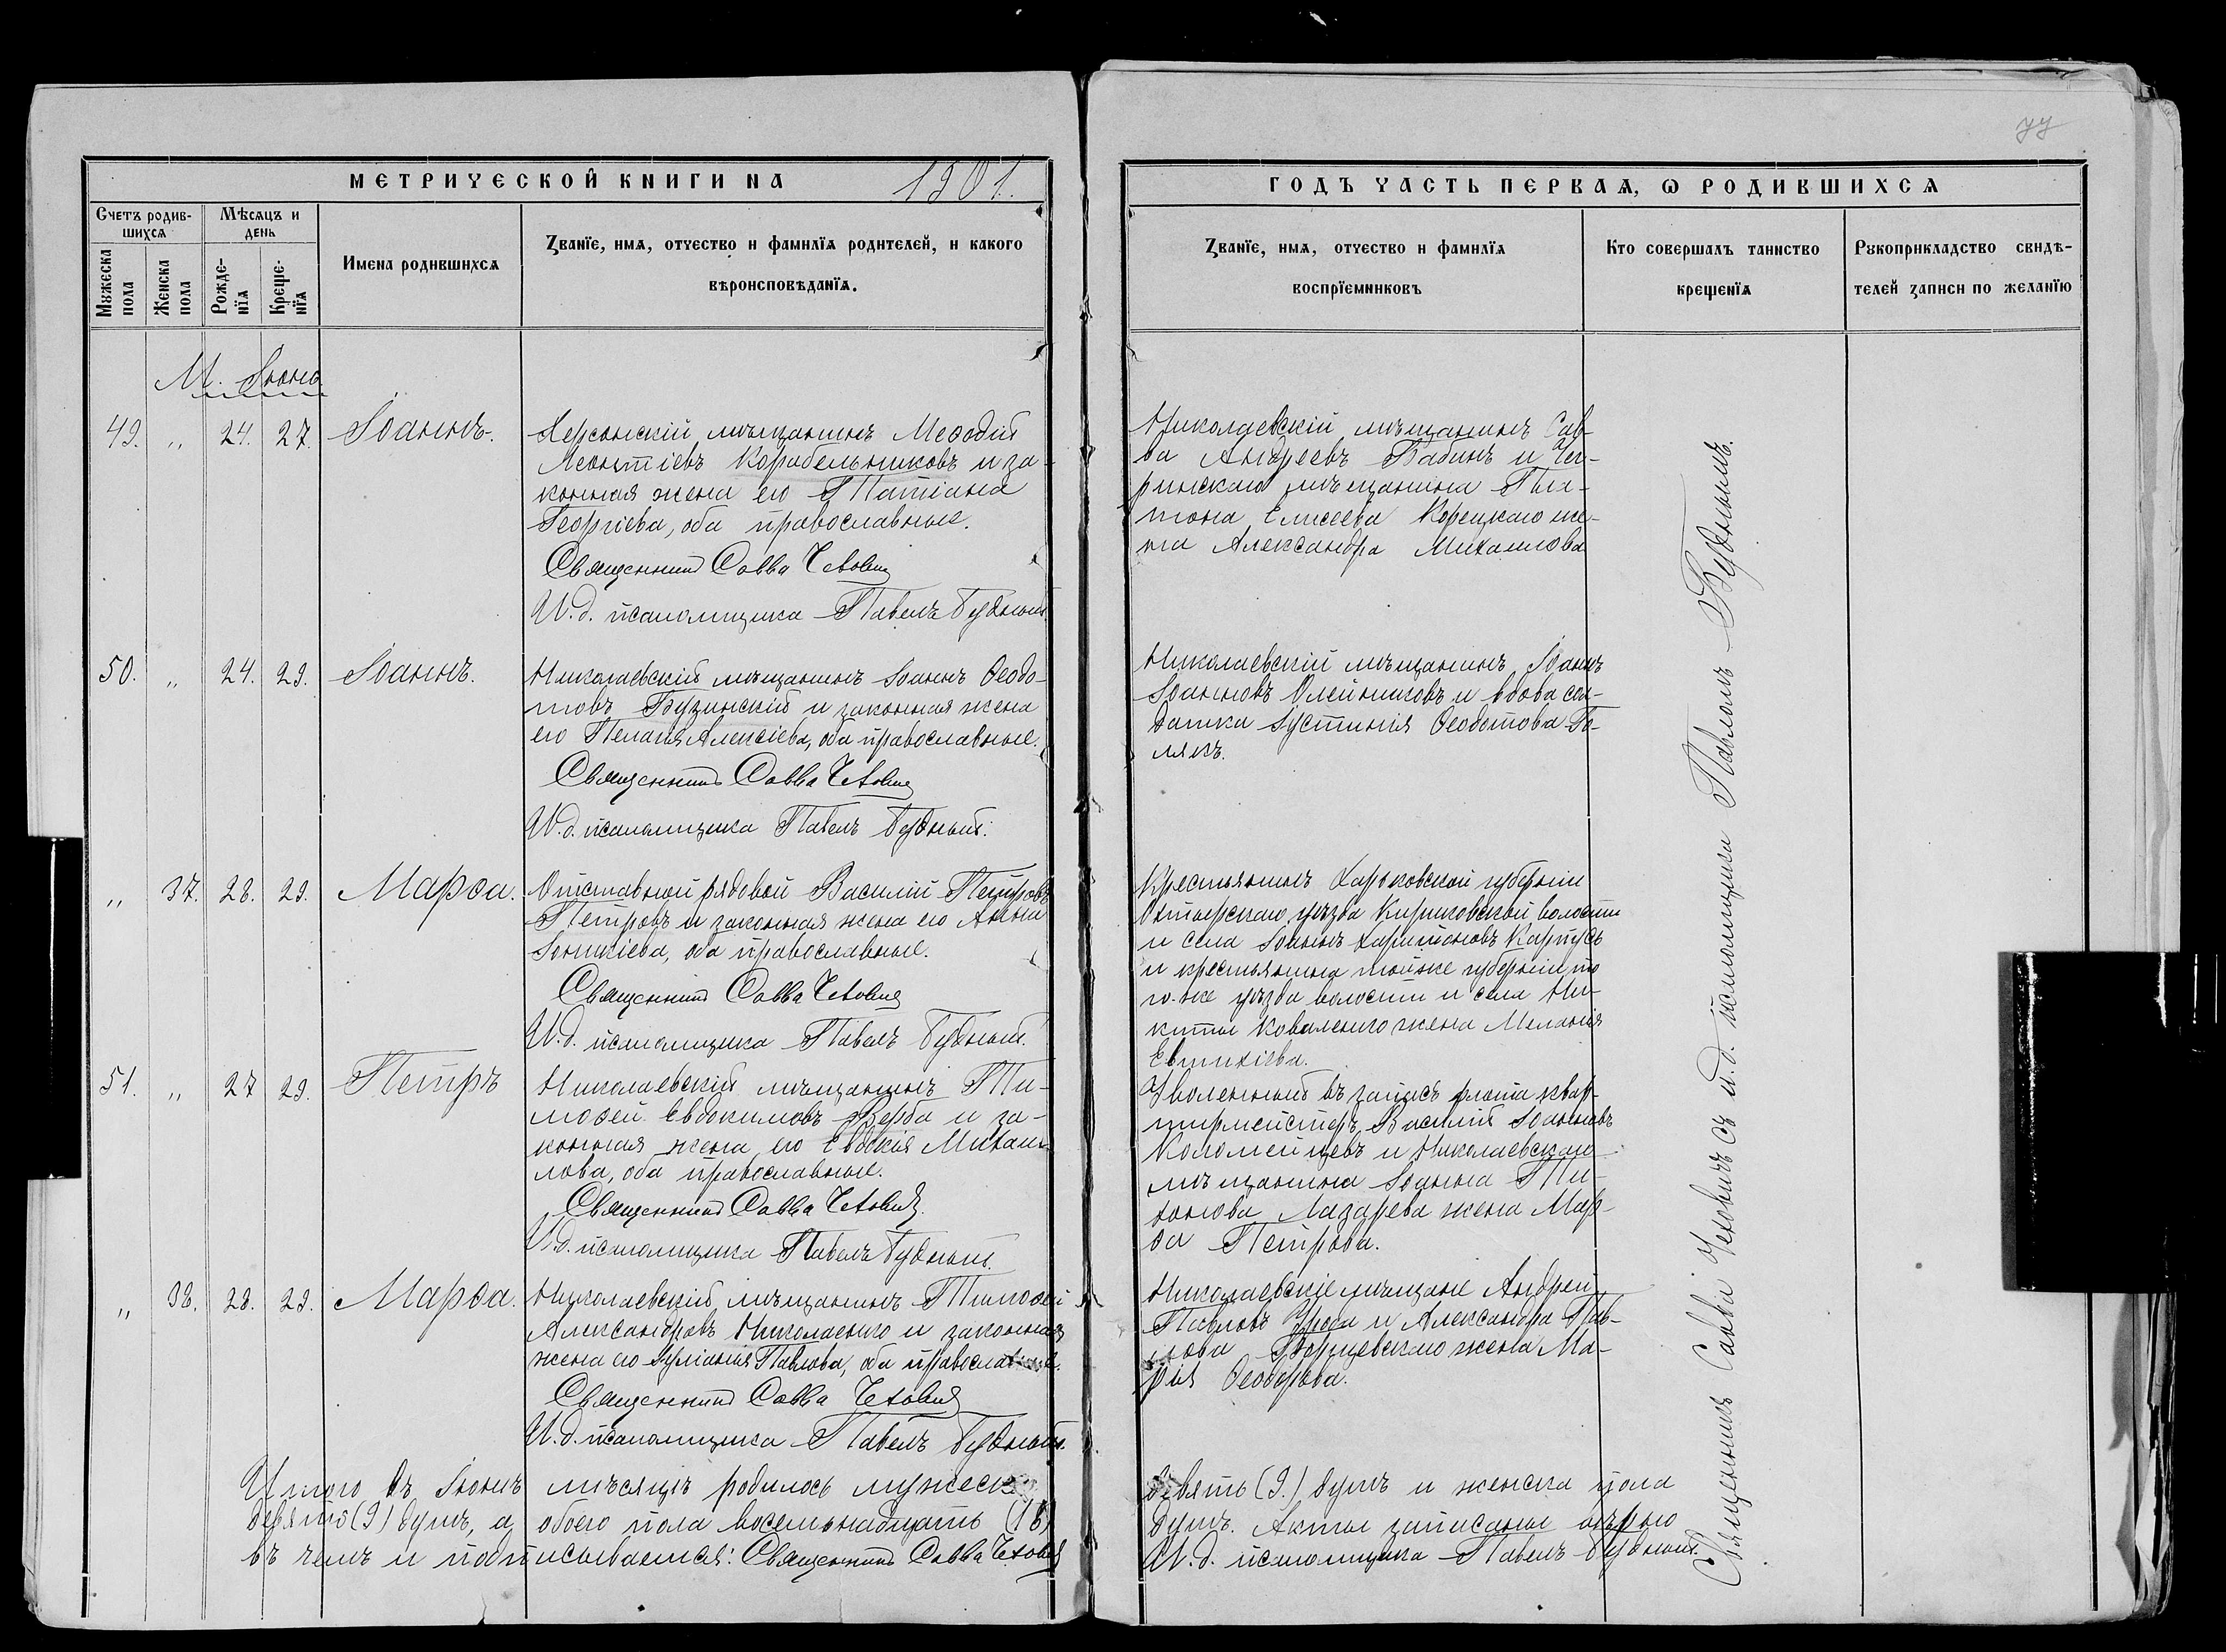 77
МЕТРИЧЕСКОЙ КНИГИ НА 1901.
ГОДЪ ЧАСТЬ ПЕРВАѦ, Ѡ РОДИВШИХСѦ
Счетъ родив-
шихсѧ
Мѣсѧцъ и
день
Мꙋжеска
пола
Женска
пола
Рожде-
нїѧ
Креще-
нїѧ
Имена родившихсѧ
Званїе, имѧ, отчество и фамилїѧ родителей, и какого
вѣроисповѣданїѧ.
Званїе, имѧ, отчество и фамилїѧ
воспрїемниковъ
Кто совершалъ таинство
крещенїѧ
Рꙋкоприкладство свидѣ-
телей записи по желанїю
М. Іюнь
49. „ 24. 27. Іоаннъ.
Херсонскій мѣщанинъ Меѳодій
Леонтіевъ Корабельниковъ и за-
конная жена его Татіана
Георгіева, оба православные.
Священникъ Савва Чеховичъ
И. д. псаломщика Павелъ Будный.
Николаевскій мѣщанинъ Сав-
ва Андреевъ Бабинъ и Чи-
ринскаго мѣщанина Пла-
тона Елисеева Корецкаго же-
на Александра Михаилова
50. „ 24. 29. Іоаннъ.
Николаевскій мѣщанинъ Іоаннъ Ѳеодо-
товъ Бузинскій и законная жена
его Пелагія Алексіева, оба православные.
Священникъ Савва Чеховичъ
И. д. псаломщика Павелъ Будный.
Николаевскій мѣщанинъ Іоаннъ
Іоанновъ Олейниковъ и вдова сол-
датка Іустинія Ѳеодотова По-
лякъ.
„ 37. 28. 29. Марѳа.
Отставной рядовой Василій Петровъ
Петровъ и законная жена его Анна
Іоаникіева, оба православные.
Священникъ Савва Чеховичъ
И. д. псаломщика Павелъ Будный.
Крестьянинъ Харьковской губерніи
Ахтырскаго уѣзда Кириковской волости
и села Іоаннъ Харитоновъ Карпусь
и крестьянина той же губерніи то
го-же уѣзда волости и села Ни-
киты Коваленко жена Меланія
Евтихіева.
51. „ 27 29. Петръ
Николаевскій мѣщанинъ Ти-
моѳей Евдокимовъ Верба и за-
конная жена его Евдокія Михаи-
лова, оба православные.
Священникъ Савва Чеховичъ.
И. д. псаломщика Павелъ Будный.
Уволенный въ запасъ флота квар-
тирмейстеръ Василій Іоанновъ
Коломейцевъ и Николаевскаго
мѣщанина Іоанна Ти-
хонова Лазарева жена Мар-
ѳа Петрова.
„ 38. 28. 29. Марѳа.
Николаевскій мѣщанинъ Тимоѳей
Александровъ Николаенко и законная
жена его Іуліанія Павлова, оба православные.
Священникъ Савва Чеховичъ
И. д. псаломщика Павелъ Будный.
Николаевскіе мѣщане Андрей
Павловъ Уреа и Александра Пав-
лова Борщевскаго жена Ма-
рія Ѳеодорова.
Священникъ Савва Чеховичъ съ и. д. псаломщика Павломъ Буднымъ.
Итого въ Іюнѣ мѣсяцѣ родилось мужеска девять (9.) душъ и женска пола
девять (9) душъ, а обоего пола восемьнадцать (18) душъ. Акты записаны вѣрно
въ чемъ и подписываемся: Священникъ Савва Чеховичъ И. д. псаломщика Павелъ Будный.